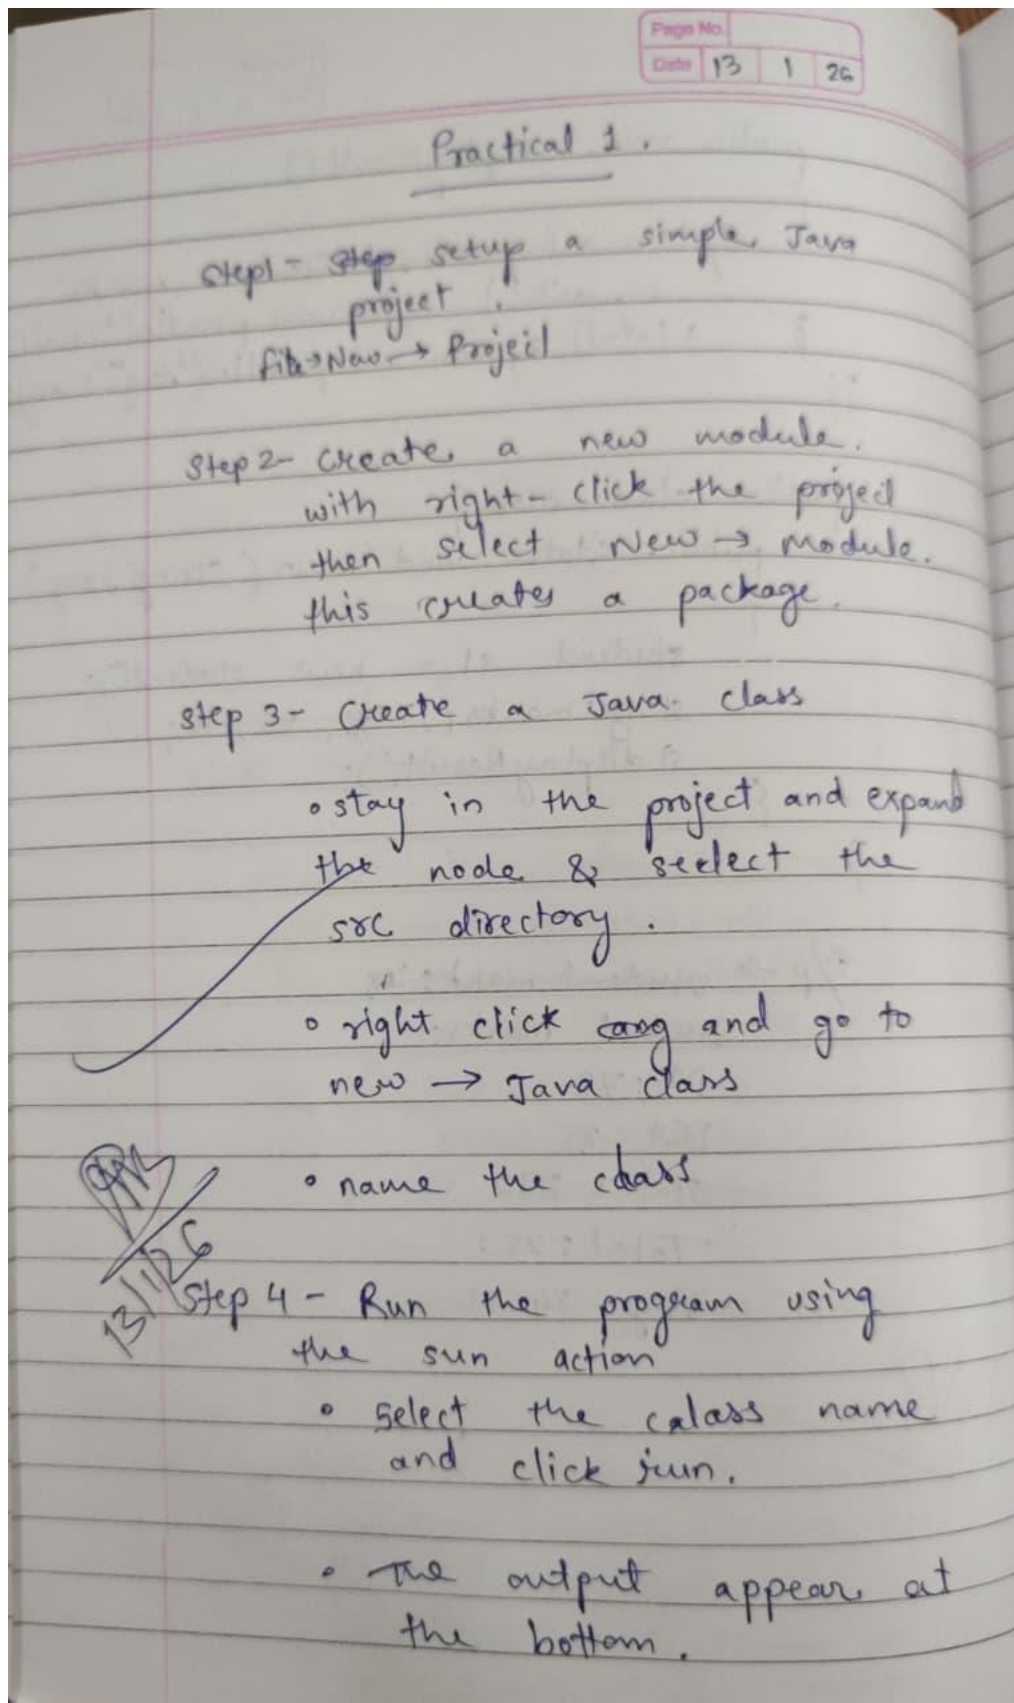 Page No.
Date 13 1 26
Practical 1.
Step1 - Step setup a simple Java
project.
file → New → Project
Step 2 - Create a new module.
with right-click the project
then select New → module.
this creates a package.
Step 3 - Create a Java class
• stay in the project and expand
the node & seelect the
src directory.
• right click and go to
new → Java class
• name the class
13/1/26
Step 4 - Run the program using
the sun action
• Select the calass name
and click run.
• The output appear at
the bottom.